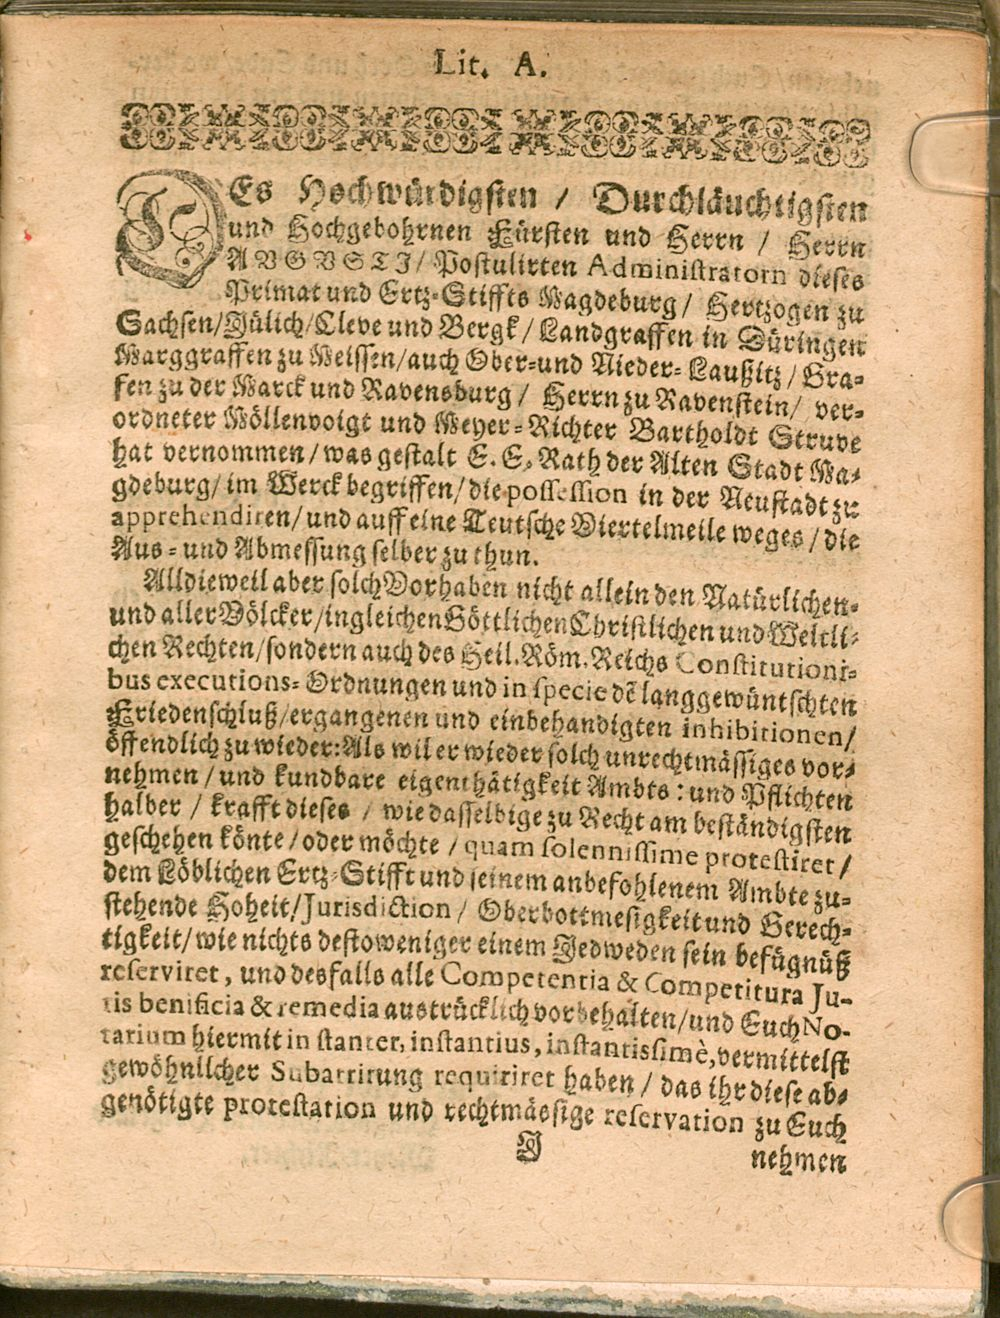 Lit. A.
DEs Hochwürdigsten / Durchläuchtigsten
und Hochgebohrnen Fürsten und Herrn / Herrn
AVGVSTI / Postulirten Administratorn dieses
Primat und Ertz-Stiffts Magdeburg / Hertzogen zu
Sachsen/Jülich/Cleve und Bergk / Landgraffen in Düringen
Marggraffen zu Meissen/auch Ober-und Nieder-Laußitz / Gra-
fen zu der Marck und Ravensburg / Herrn zu Ravenstein/ ver-
ordneter Möllenvoigt und Meyer-Richter Bartholdt Struve
hat vernommen / was gestalt E. E. Rath der Alten Stadt Ma-
gdeburg/ im Werck begriffen/ die possession in der Neustadt zu
apprehendiren/ und auff eine Teutsche Viertelmeile weges / die
Aus- und Abmessung selber zu thun.
Alldieweil aber solch Vorhaben nicht allein den Natürlichen-
und aller Völcker/ingleichen Göttlichen Christlichen und Weltli-
chen Rechten/sondern auch des Heil. Röm. Reichs Constitutioni-
bus executions-Ordnungen und in specie dē langgewüntschten
Friedenschluß/ergangenen und einbehandigten inhibitionen/
öffendlich zu wieder: Als wil er wieder solch unrechtmässiges vor-
nehmen / und kundbare eigenthätigkeit Ambts: und Pflichten
halber / krafft dieses / wie dasselbige zu Recht am beständigsten
geschehen könte / oder möchte / quam solennissime protestiret /
dem Löblichen Ertz-Stifft und seinem anbefohlenem Ambte zu-
stehende Hoheit/Jurisdiction / Oberbottmesigkeit und Gerech-
tigkeit/ wie nichts destoweniger einem Jedweden sein befügnüß
reserviret, und desfalls alle Competentia & Competitura Ju-
ris benificia & remedia austrücklich vorbehalten/und Euch No-
tarium hiermit in stanter, instantius, instantissimè, vermittelst
gewöhnlicher Subarrirung requiriret haben / das ihr diese ab-
genötigte protestation und rechtmässige reservation zu Euch
J
nehmen